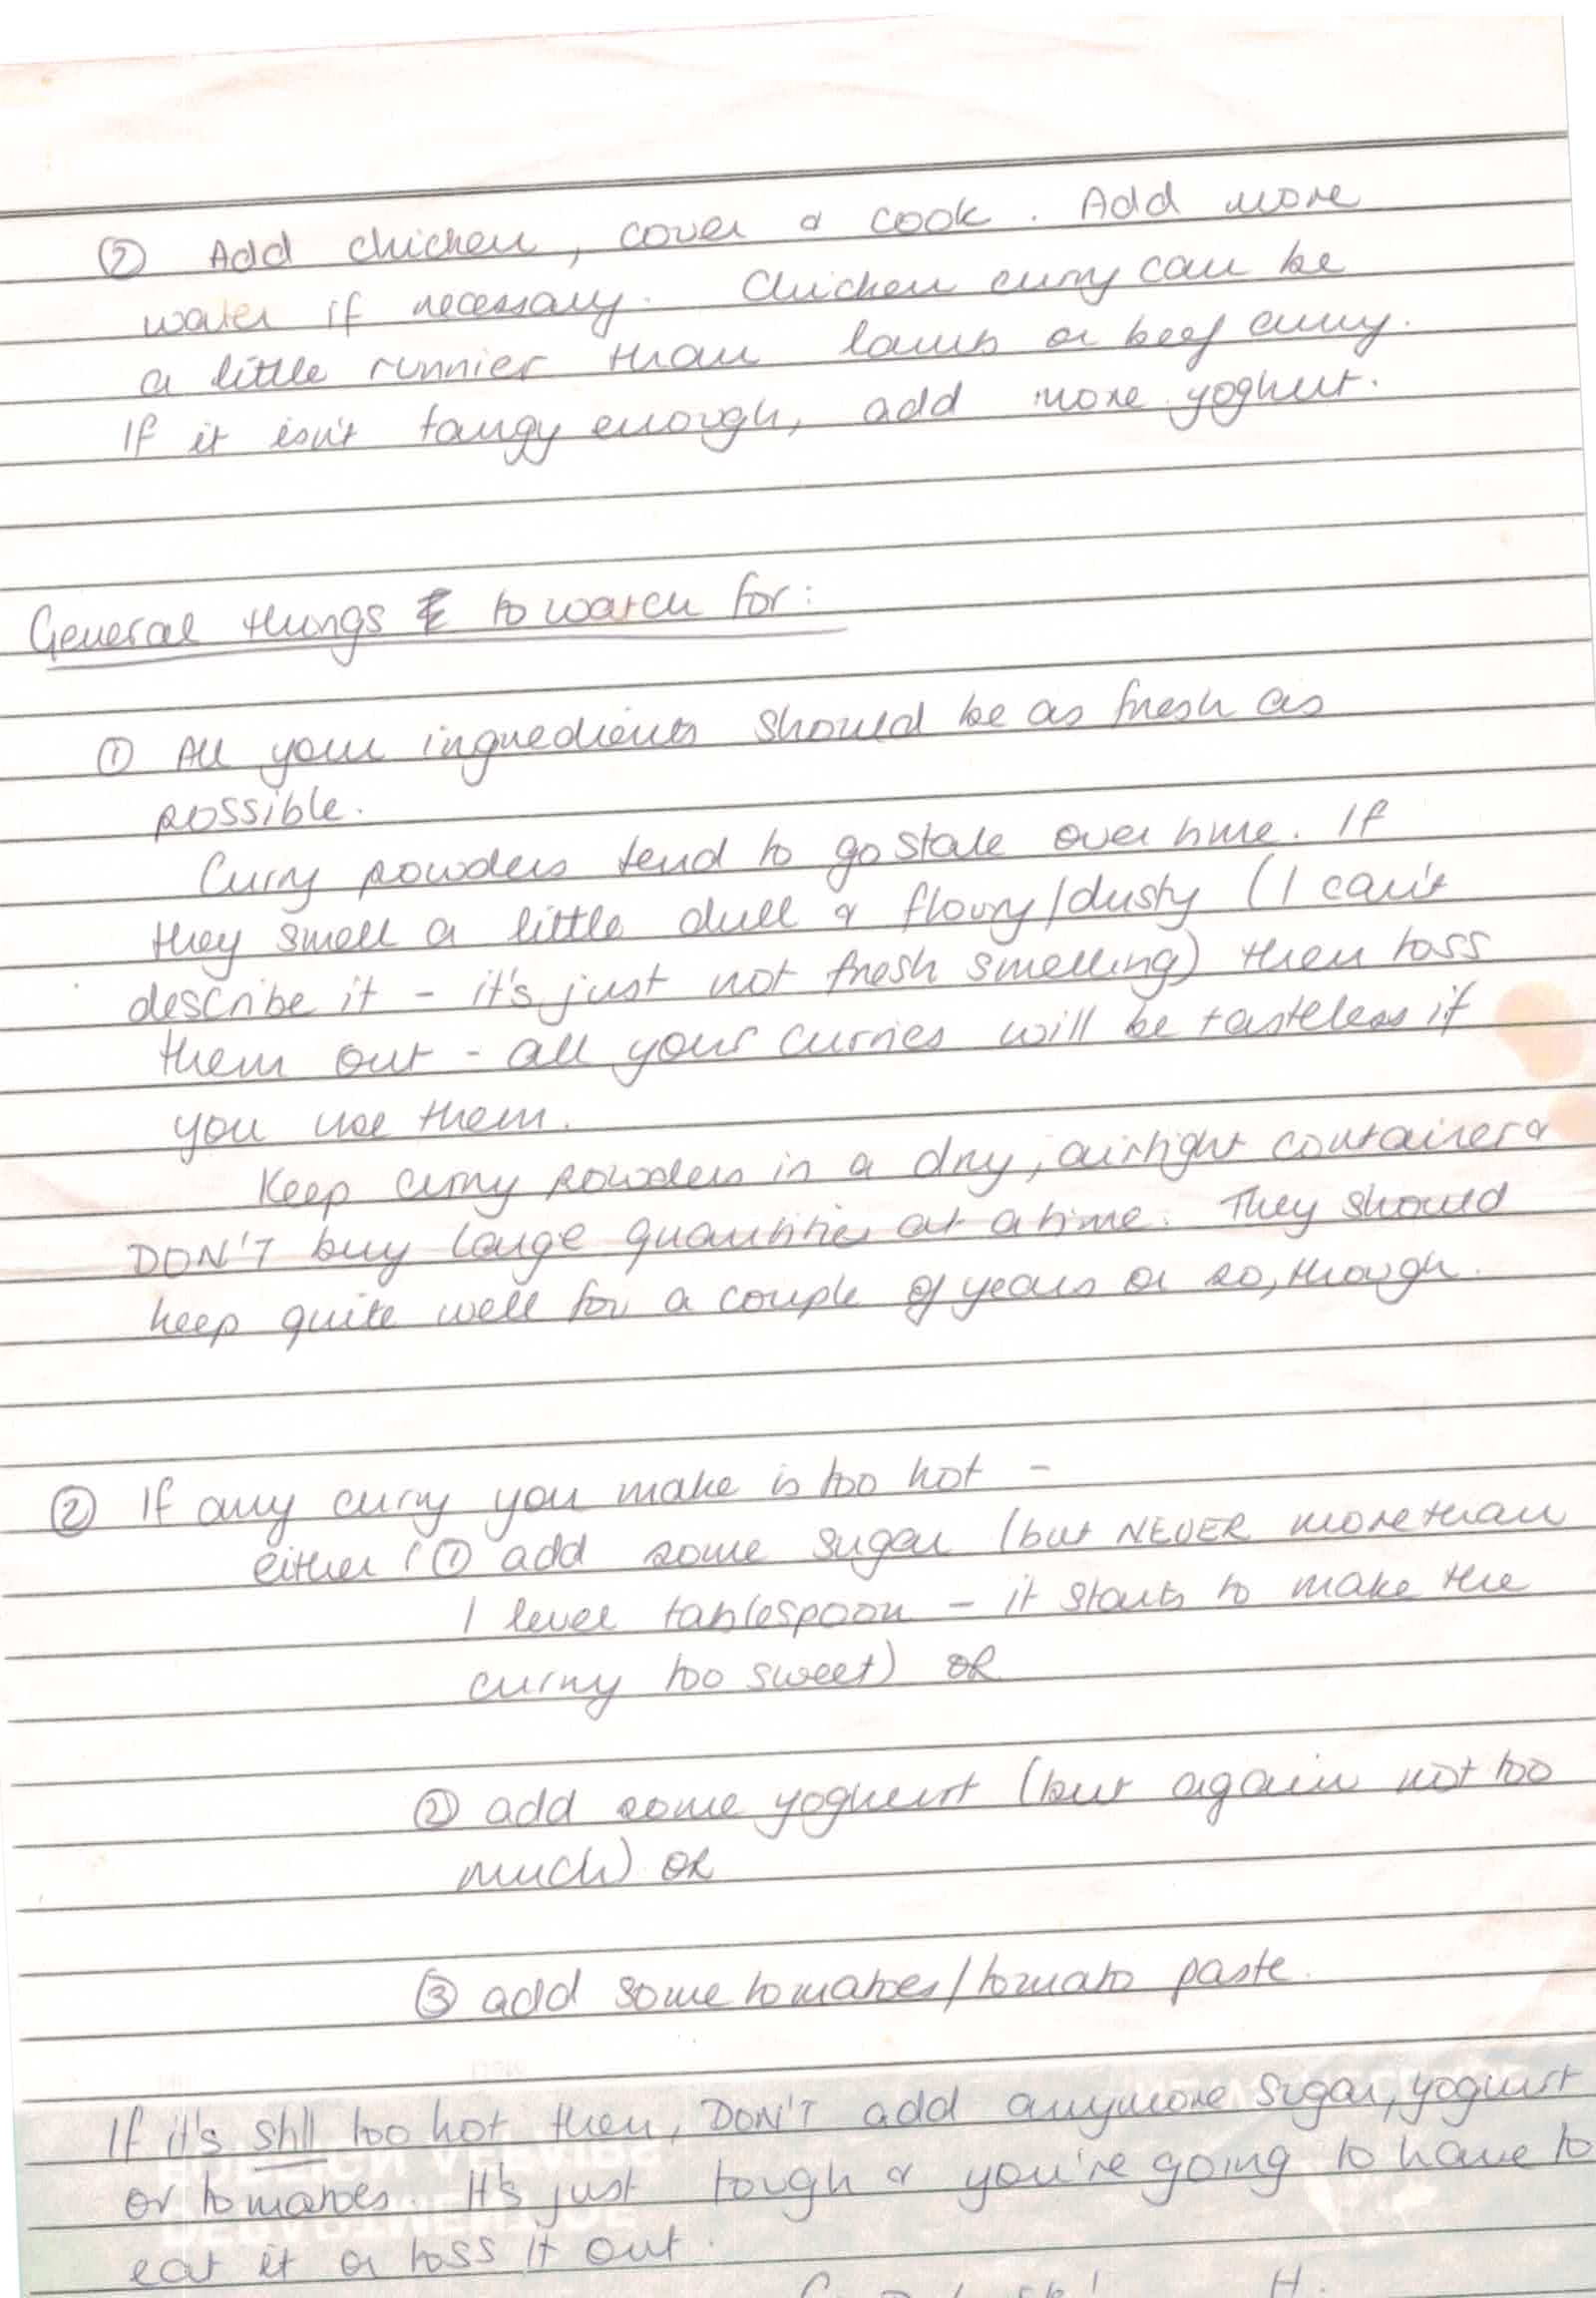 ② Add chicken, cover & cook. Add more
water if necessary. Chicken curry can be
a little runnier than lamb or beef curry.
If it isn't tangy enough, add more yoghurt.
General things to watch for:
① All your ingredients should be as fresh as
possible.
Curry powders tend to go stale over time. If
they smell a little dull & floury/dusty (I can't
describe it - it's just not fresh smelling) then toss
them out - all your curries will be tasteless if
you use them.
Keep curry powders in a dry, airtight container &
DON'T buy large quantities at a time. They should
keep quite well for a couple of years or so, though.
② If any curry you make is too hot -
either: ① add some sugar (but NEVER more than
1 level tablespoon - it starts to make the
curry too sweet) OR
② add some yoghurt (but again not too
much) OR
③ add some tomatoes/tomato paste.
If it's still too hot then, DON'T add anymore sugar, yogurt
or tomatoes. It's just tough & you're going to have to
eat it or toss it out.
H.